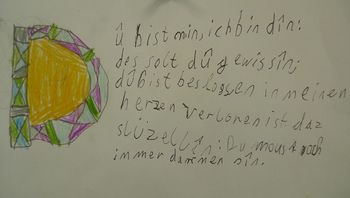 û bist min, ich bin dîn:
des solt dû gewis sîn;
dû bist beslossen in meinen
herzen verloren ist daz
slüzellîn: Du mous t noch
immer darinnen sîn.